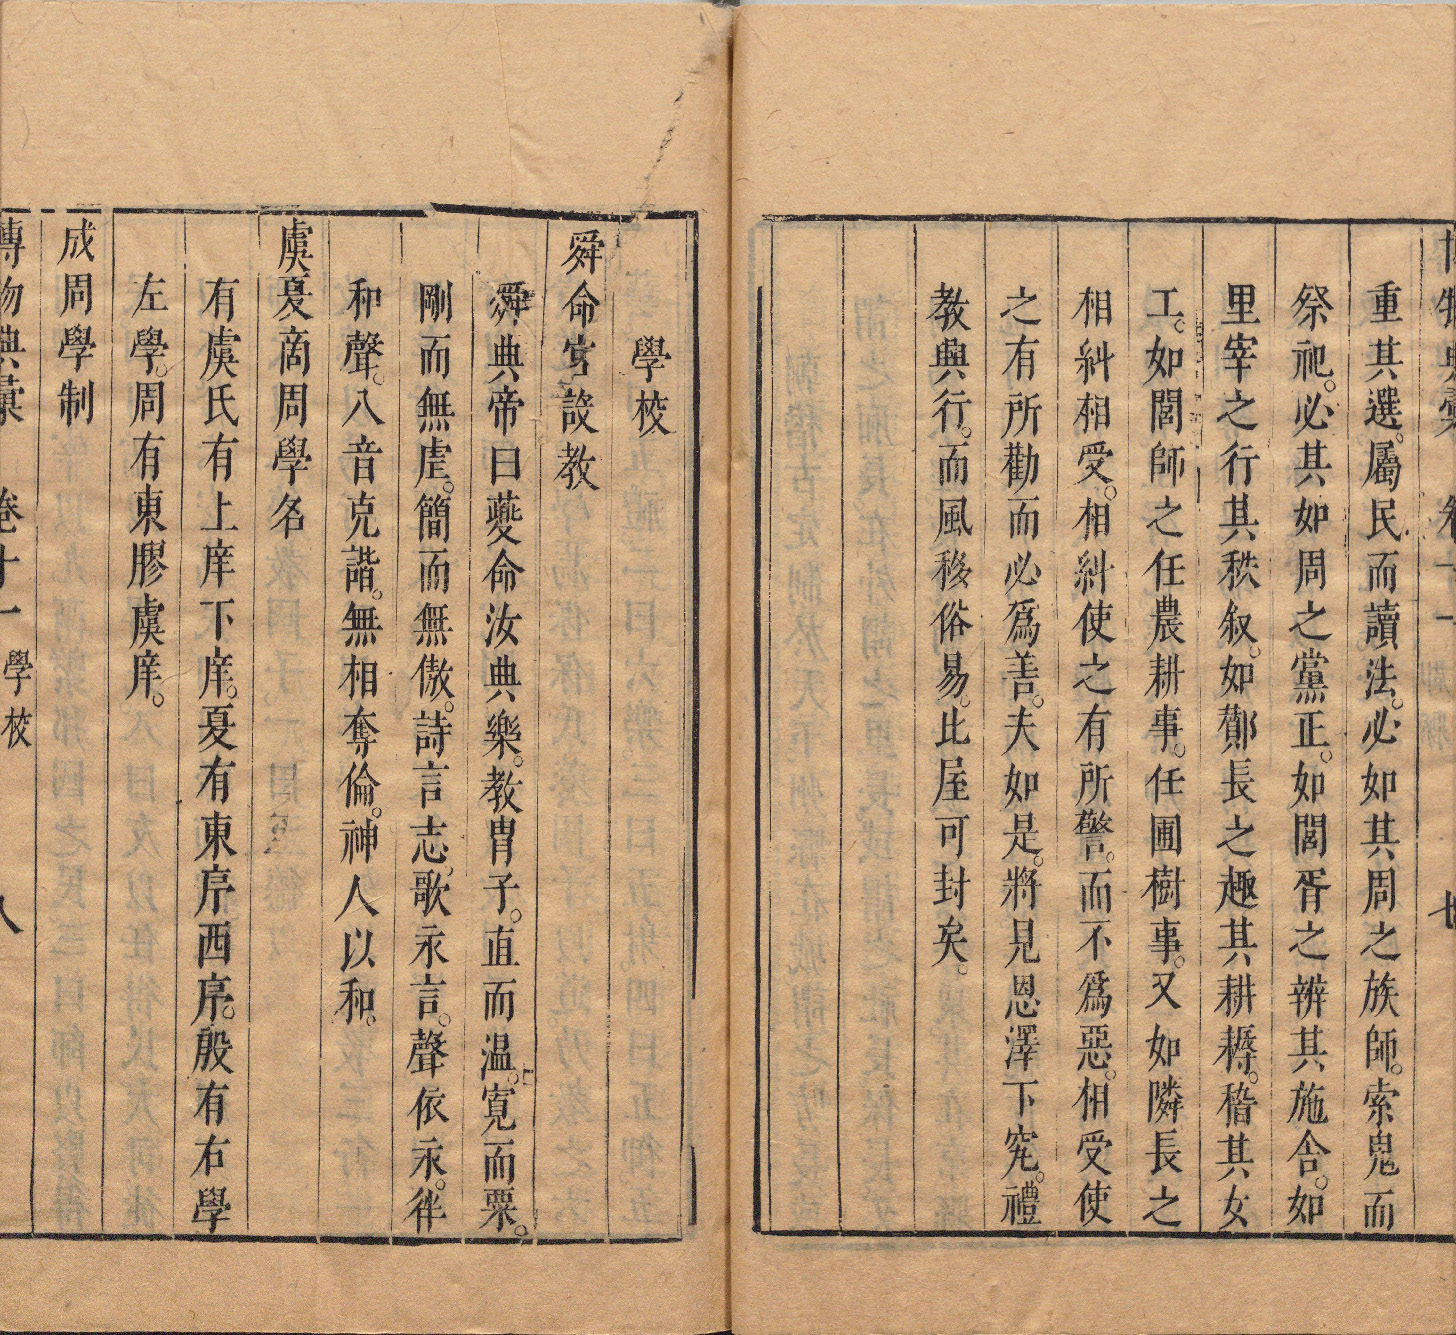 重其選。屬民而讀法。必如其周之族師。索鬼而
祭祀。必其如周之黨正。如閭胥之辨其施舍。如
里宰之行其秩叙。如酇長之趣其耕耨。稽其女
工。如閭師之任農耕事。任圃樹事。又如隣長之
相糾相受。相糾使之有所警。而不爲惡。相受使
之有所勸而必爲善。夫如是。將見恩澤下究。禮
教興行。而風移俗易。比屋可封矣。
學校
舜命官設教
舜典帝曰夔命汝典樂。教胄子。直而温。寛而栗。
剛而無虐。簡而無傲。詩言志。歌永言。聲依永。律
和聲。八音克諧。無相奪倫。神人以和。
虞夏商周學名
有虞氏有上庠下庠。夏有東序西序。殷有右學
左學。周有東膠虞庠。
成周學制
博物典彙 卷十一 學校 八